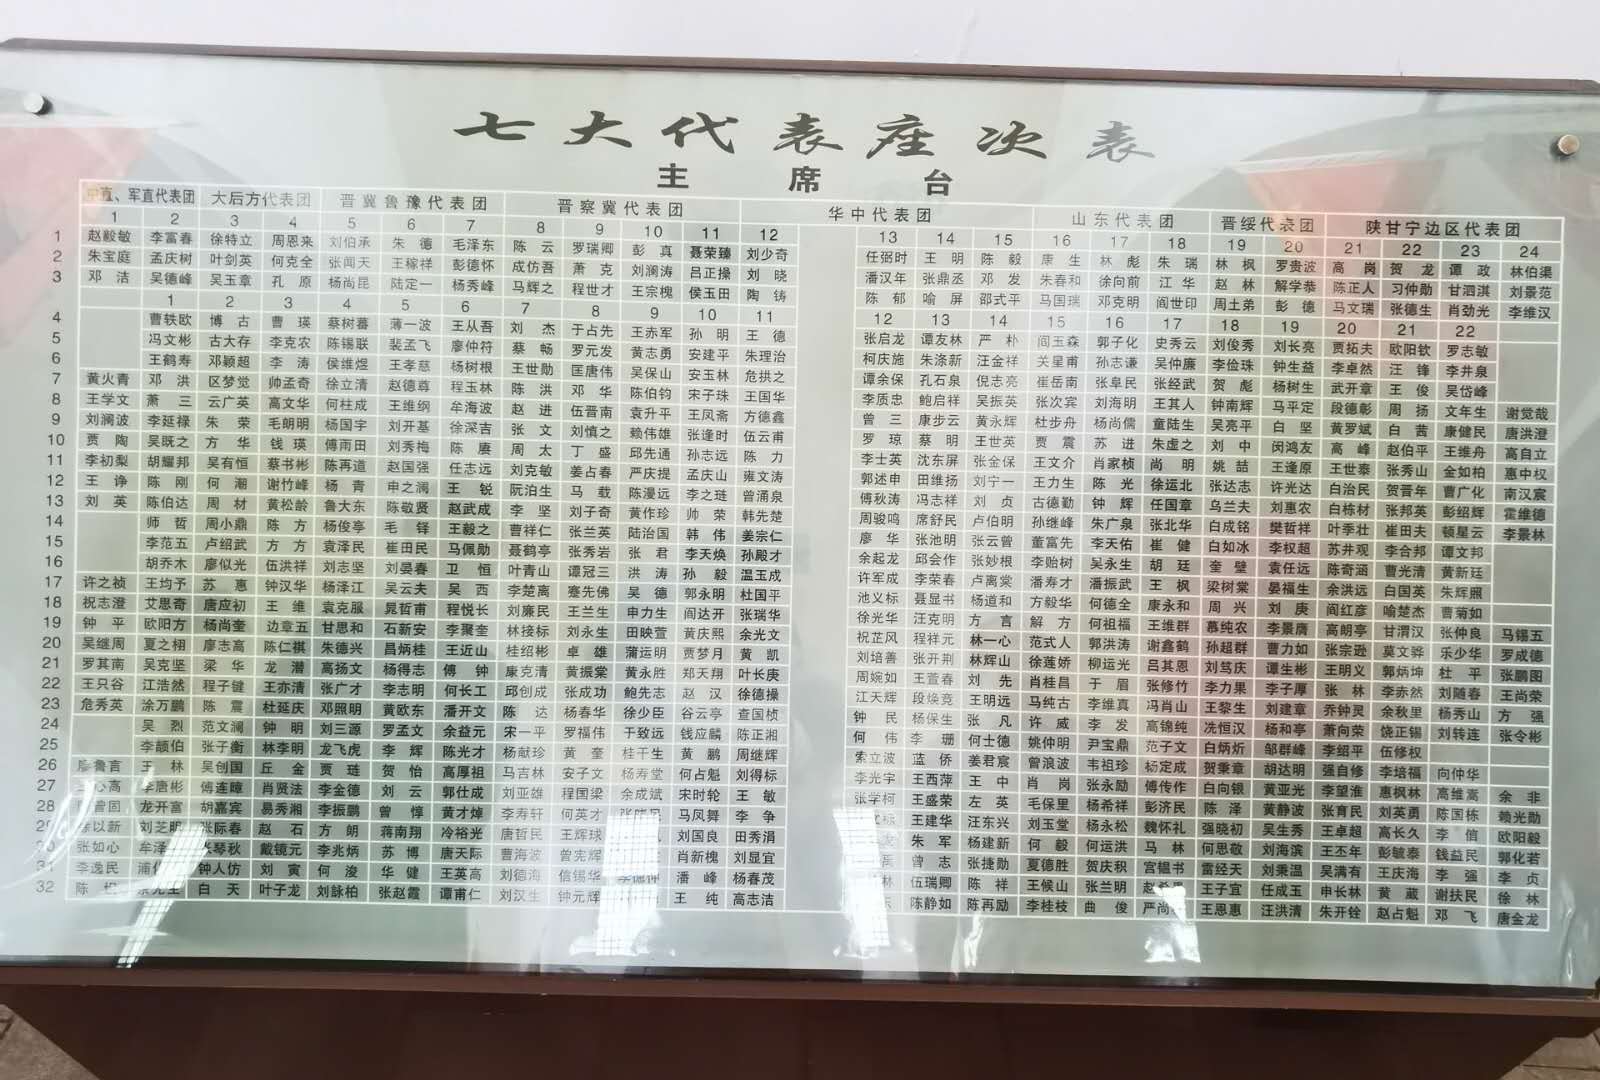 七大代表座次表
主席台
中直、军直代表团 大后方代表团 晋冀鲁豫代表团 晋察冀代表团 华中代表团 山东代表团 晋绥代表团 陕甘宁边区代表团
1 2 3 4 5 6 7 8 9 10 11 12 13 14 15 16 17 18 19 20 21 22 23 24
1 赵毅敏 李富春 徐特立 周恩来 刘伯承 朱德 毛泽东 陈云 罗瑞卿 彭真 聂荣臻 刘少奇 任弼时 王明 陈毅 康生 林彪 朱瑞 林枫 罗贵波 高岗 贺龙 谭政 林伯渠
2 朱宝庭 孟庆树 叶剑英 何克全 张闻天 王稼祥 彭德怀 成仿吾 萧克 刘澜涛 吕正操 刘晓 潘汉年 张鼎丞 邓发 朱春和 徐向前 江华 赵林 解学恭 陈正人 习仲勋 甘泗淇 刘景范
3 邓洁 吴德峰 吴玉章 孔原 杨尚昆 陆定一 杨秀峰 马辉之 程世才 王宗槐 侯玉田 陶铸 陈郁 喻屏 邵式平 马国瑞 邓克明 阎世印 周士弟 彭德 马文瑞 张德生 肖劲光 李维汉
1 2 3 4 5 6 7 8 9 10 11 12 13 14 15 16 17 18 19 20 21 22
4 曹轶欧 博古 曹瑛 蔡树蕃 薄一波 王从吾 刘杰 于占先 王赤军 孙明 王德 张启龙 谭友林 严朴 阎玉森 郭子化 史秀云 刘俊秀 刘长亮 贾拓夫 欧阳钦 罗志敏
5 冯文彬 古大存 李克农 陈锡联 裴孟飞 廖仲符 蔡畅 罗元发 黄志勇 安建平 朱理治 柯庆施 朱涤新 汪金祥 关星甫 孙志谦 吴仲廉 李俭珠 钟生益 李卓然 汪锋 李井泉
6 王鹤寿 邓颖超 李涛 侯维煜 王孝慈 杨树根 王世勋 匡唐伟 吴保山 安玉林 危拱之 谭余保 孔石泉 倪志亮 崔岳南 张阜民 张经武 贺彪 杨树生 武开章 王俊 吴岱峰
7 黄火青 邓洪 区梦觉 帅孟奇 徐立清 赵德尊 程玉林 陈洪 邓华 陈伯钧 宋子珠 王国华 李质忠 鲍启祥 吴振英 张次宾 刘海明 王其人 钟南辉 马平定 段德彰 周扬 文年生 谢觉哉
8 王学文 萧三 云广英 高文华 何柱成 王维纲 牟海波 赵进 伍晋南 袁升平 王凤斋 方德鑫 曾三 康步云 黄永辉 杜步舟 杨尚儒 童陆生 吴亮平 白坚 黄罗斌 白茜 康健民 唐洪澄
9 刘澜波 李延禄 朱荣 毛朗明 杨国宇 刘开基 徐深吉 张文 刘慎之 赖伟雄 张逢时 伍云甫 罗琼 蔡明 王世英 贾震 苏进 朱虚之 刘中 闵鸿友 高峰 赵伯平 王维舟 高自立
10 贾陶 吴既之 方华 钱瑛 傅雨田 刘秀梅 陈赓 周太 丁盛 邱先通 孙志远 陈力 李士英 沈东屏 张金保 王文介 肖家桢 尚明 姚喆 王逢原 王世泰 张秀山 金如柏 惠中权
11 李初梨 胡耀邦 吴有恒 蔡书彬 陈再道 赵国强 任志远 刘克敏 姜占春 严庆提 孟庆山 雍文涛 郭述申 田维扬 刘宁一 王力生 陈光 徐运北 张达志 许光达 白治民 贺晋年 曹广化 南汉宸
12 王诤 陈刚 何潮 谢竹峰 杨青 申之澜 王锐 阮泊生 马载 陈漫远 李之琏 曾涌泉 傅秋涛 冯志祥 刘贞 古德勤 钟辉 任国章 乌兰夫 刘惠农 白栋材 张邦英 彭绍辉 霍维德
13 刘英 陈伯达 周材 黄松龄 鲁大东 陈敬贤 赵武成 李坚 刘子奇 黄作珍 帅荣 韩先楚 周骏鸣 席舒民 卢伯明 孙继峰 朱广泉 张北华 白成铭 樊哲祥 叶季壮 崔田夫 顿星云 李景林
14 师哲 周小鼎 陈方 杨俊亭 毛铎 王毅之 曹祥仁 张兰英 陆治国 韩伟 姜宗仁 廖华 张池明 张云曾 董富先 李天佑 崔健 白如冰 李权超 苏井观 李合邦 谭文邦
15 李范五 卢绍武 方方 袁泽民 崔田民 马佩勋 聂鹤亭 张秀岩 张君 李天焕 孙殿才 余起龙 邱会作 张妙根 李贻树 吴永生 胡廷 奎璧 袁任远 陈奇涵 曹光清 黄新廷
16 胡乔木 廖似光 伍洪祥 刘志坚 刘晏春 卫恒 叶青山 谭冠三 洪涛 孙毅 温玉成 许军成 李荣春 卢离棠 潘寿才 潘振武 王枫 梁树棠 晏福生 余洪远 白国英 朱辉照
17 许之桢 王均予 苏惠 钟汉华 杨泽江 吴云夫 吴西 李楚离 蹇先佛 吴德 郭永明 杜国平 池义标 聂显书 杨道和 方毅华 何德全 康永和 周兴 刘庚 阎红彦 喻楚杰 曹菊如
18 祝志澄 艾思奇 唐应初 王维 袁克服 晁哲甫 程悦长 刘廉民 王兰生 申力生 阎达开 张瑞华 徐光华 汪克明 方言 解方 何祖福 王维群 慕纯农 李景膺 高朗亭 甘渭汉 张仲良 马锡五
19 钟平 欧阳方 杨尚奎 边章五 甘思和 石新安 李聚奎 林接标 刘永生 田映萱 黄庆熙 余光文 祝芷风 程祥元 林一心 范式人 郭洪涛 谢鑫鹤 孙超群 曹力如 张宗逊 莫文骅 乐少华 罗成德
20 吴继周 夏之栩 廖志高 陈仁祺 朱德兴 昌炳桂 王近山 桂绍彬 卓雄 蒲运明 贾梦月 黄凯 刘培善 张开荆 林辉山 徐莲娇 柳运光 吕其恩 刘笃庆 谭生彬 王明义 郭炳坤 杜平 张鹏图
21 罗其南 吴克坚 梁华 龙潜 高扬文 杨得志 傅钟 康克清 黄振棠 黄永胜 郑天翔 叶长庚 周婉如 王萱春 刘先 肖桂昌 于眉 张修竹 李力果 李子厚 张林 李赤然 刘随春 王尚荣
22 王只谷 江浩然 程子健 王亦清 张广才 李志明 何长工 邱创成 张成功 鲍先志 赵汉 徐德操 江天辉 段焕竞 王明远 马纯古 李维真 冯肖山 王黎生 刘建章 乔钟灵 余秋里 杨秀山 方强
23 危秀英 涂万鹏 陈震 杜延庆 邓照明 黄欧东 潘开文 陈达 杨春华 徐少臣 谷云亭 查国桢 钟民 杨保生 张凡 许威 李发 高锦纯 冼恒汉 杨和亭 萧向荣 饶正锡 刘转连 张令彬
24 吴烈 范文澜 钟明 刘三源 罗孟文 余益元 宋一平 罗福伟 于致远 钱应麟 陈正湘 何伟 李珊 何士德 姚仲明 尹宝鼎 范子文 白炳炘 邹群峰 李绍平 伍修权
25 李颉伯 张子衡 林李明 龙飞虎 李辉 陈光才 杨献珍 黄奎 桂干生 黄鹏 周继辉 索立波 蓝侨 姜君宸 曾浪波 韦祖珍 杨定成 贺秉章 胡达明 强自修 李培福 向仲华
26 廖鲁言 王林 吴创国 丘金 贾琏 贺怡 高厚祖 马吉林 安子文 杨寿堂 何占魁 刘得标 李光宇 王西萍 王中 肖岗 张永励 傅传作 白向银 黄亚光 李望淮 惠枫林 高维嵩 余非
27 心高 李唐彬 傅连暲 肖贤法 李金德 刘云 郭仕成 刘亚雄 程国梁 余成斌 宋时轮 王敏 张学柯 王盛荣 左英 毛保里 杨希祥 彭济民 陈泽 黄静波 张育民 刘英勇 陈国栋 赖光勋
28 曾固 龙开富 胡嘉宾 易秀湘 李振鹏 曾惇 黄才焯 李寿轩 何英才 马凤舞 李争 王建华 汪东兴 刘玉堂 杨永松 魏怀礼 强晓初 吴生秀 王卓超 高长久 李信 欧阳毅
29 徐以新 刘芝明 张际春 赵石 方朗 蒋南翔 冷裕光 唐哲民 王辉球 刘国良 田秀涓 朱军 杨建新 何毅 何运洪 马林 何思敬 刘海滨 王丕年 彭毓泰 钱益民 郭化若
30 张如心 牟泽 张琴秋 戴镜元 李兆炳 苏博 唐天际 曹海波 曾宪辉 肖新槐 刘显宜 曾志 张捷勋 夏德胜 贺庆积 宫韫书 雷经天 刘秉温 吴满有 王庆海 李强 李贞
31 李逸民 浦 钟人仿 刘寅 何浚 华健 王英高 刘德海 信锡华 潘峰 杨春茂 林 伍瑞卿 陈祥 王候山 张兰明 王子宜 任成玉 申长林 黄葳 谢扶民 徐林
32 陈坦 白天 叶子龙 刘詠柏 张赵霞 谭甫仁 刘汉生 钟元辉 王纯 高志洁 陈静如 陈再励 李桂枝 曲俊 严尚 王恩惠 汪洪清 朱开铨 赵占魁 邓飞 唐金龙